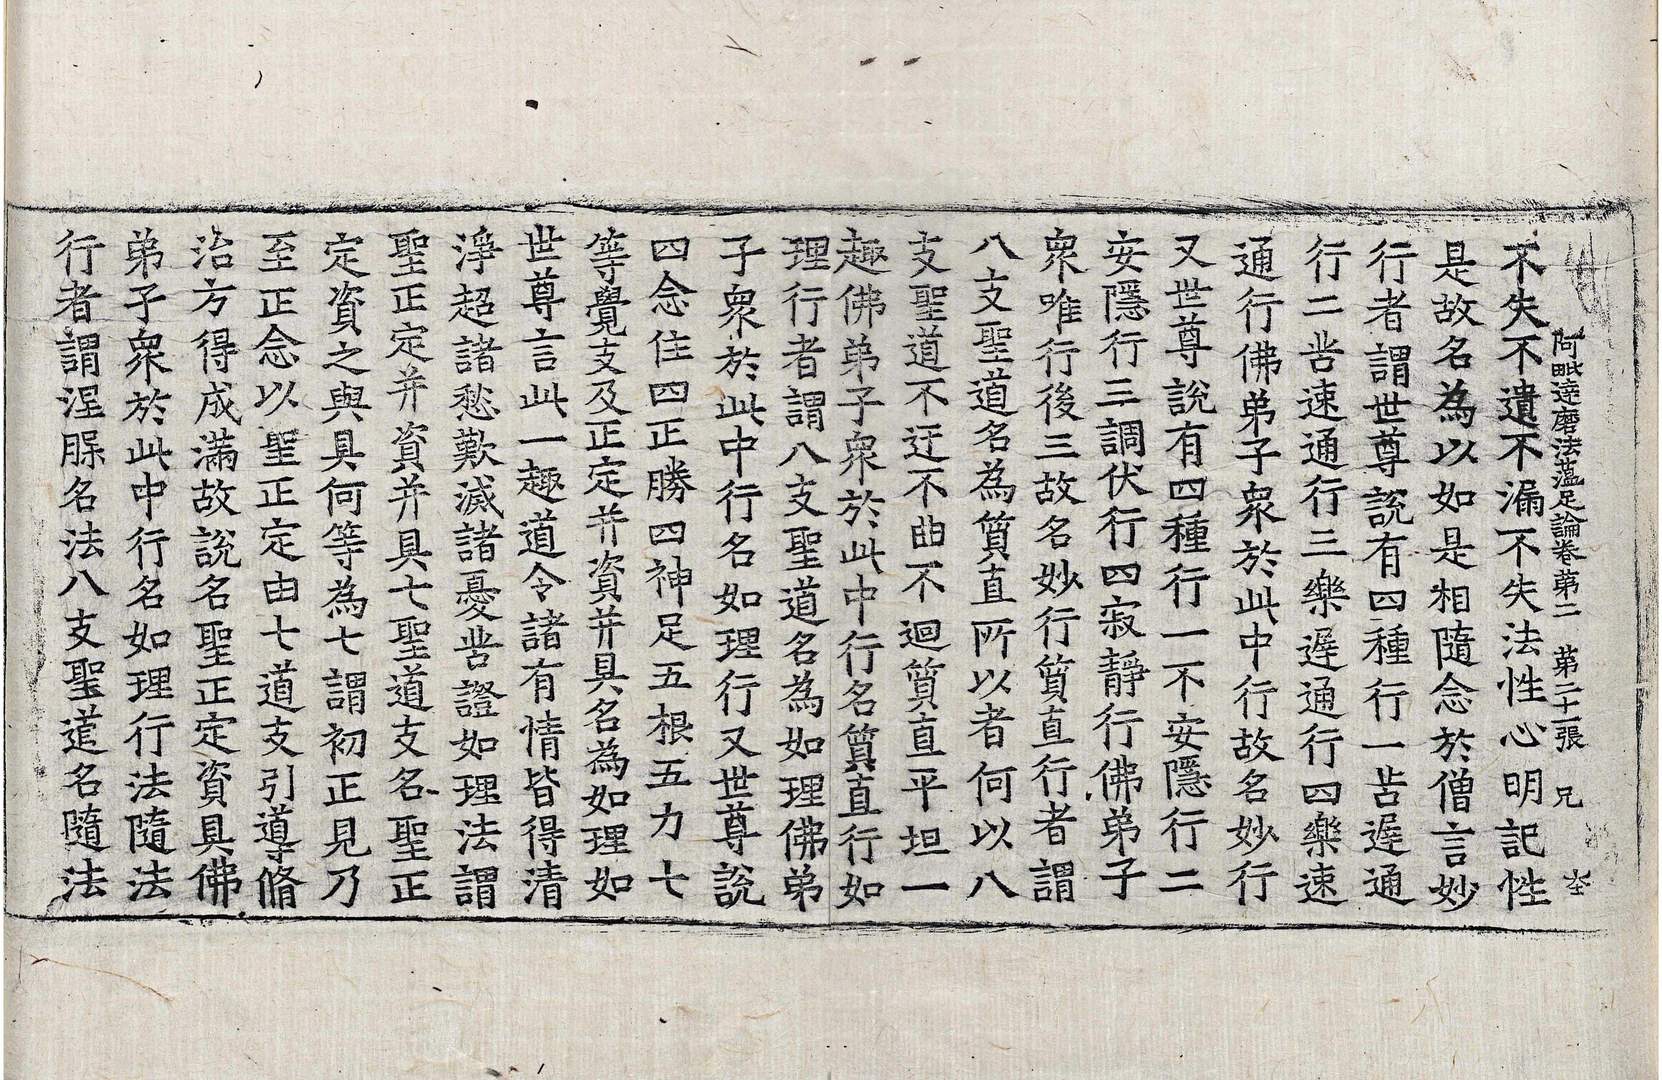 阿毗達磨法蘊足論卷第二　第二十一張　兄
不失不遺不漏不失法性心明記性
是故名為以如是相隨念於僧言妙
行者謂世尊說有四種行一苦遲通
行二苦速通行三樂遲通行四樂速
通行佛弟子衆於此中行故名妙行
又世尊說有四種行一不安隱行二
安隱行三調伏行四寂靜行佛弟子
衆唯行後三故名妙行質直行者謂
八支聖道名為質直所以者何以八
支聖道不迂不曲不迴質直平坦一
趣佛弟子衆於此中行名質直行如
理行者謂八支聖道名為如理佛弟
子衆於此中行名如理行又世尊說
四念住四正勝四神足五根五力七
等覺支及正定幷資幷具名為如理如
世尊言此一趣道令諸有情皆得清
淨超諸愁歎滅諸憂苦證如理法謂
聖正定幷資幷具七聖道支名聖正
定資之與具何等為七謂初正見乃
至正念以聖正定由七道支引導脩
治方得成滿故說名聖正定資具佛
弟子衆於此中行名如理行法隨法
行者謂涅槃名法八支聖道名隨法